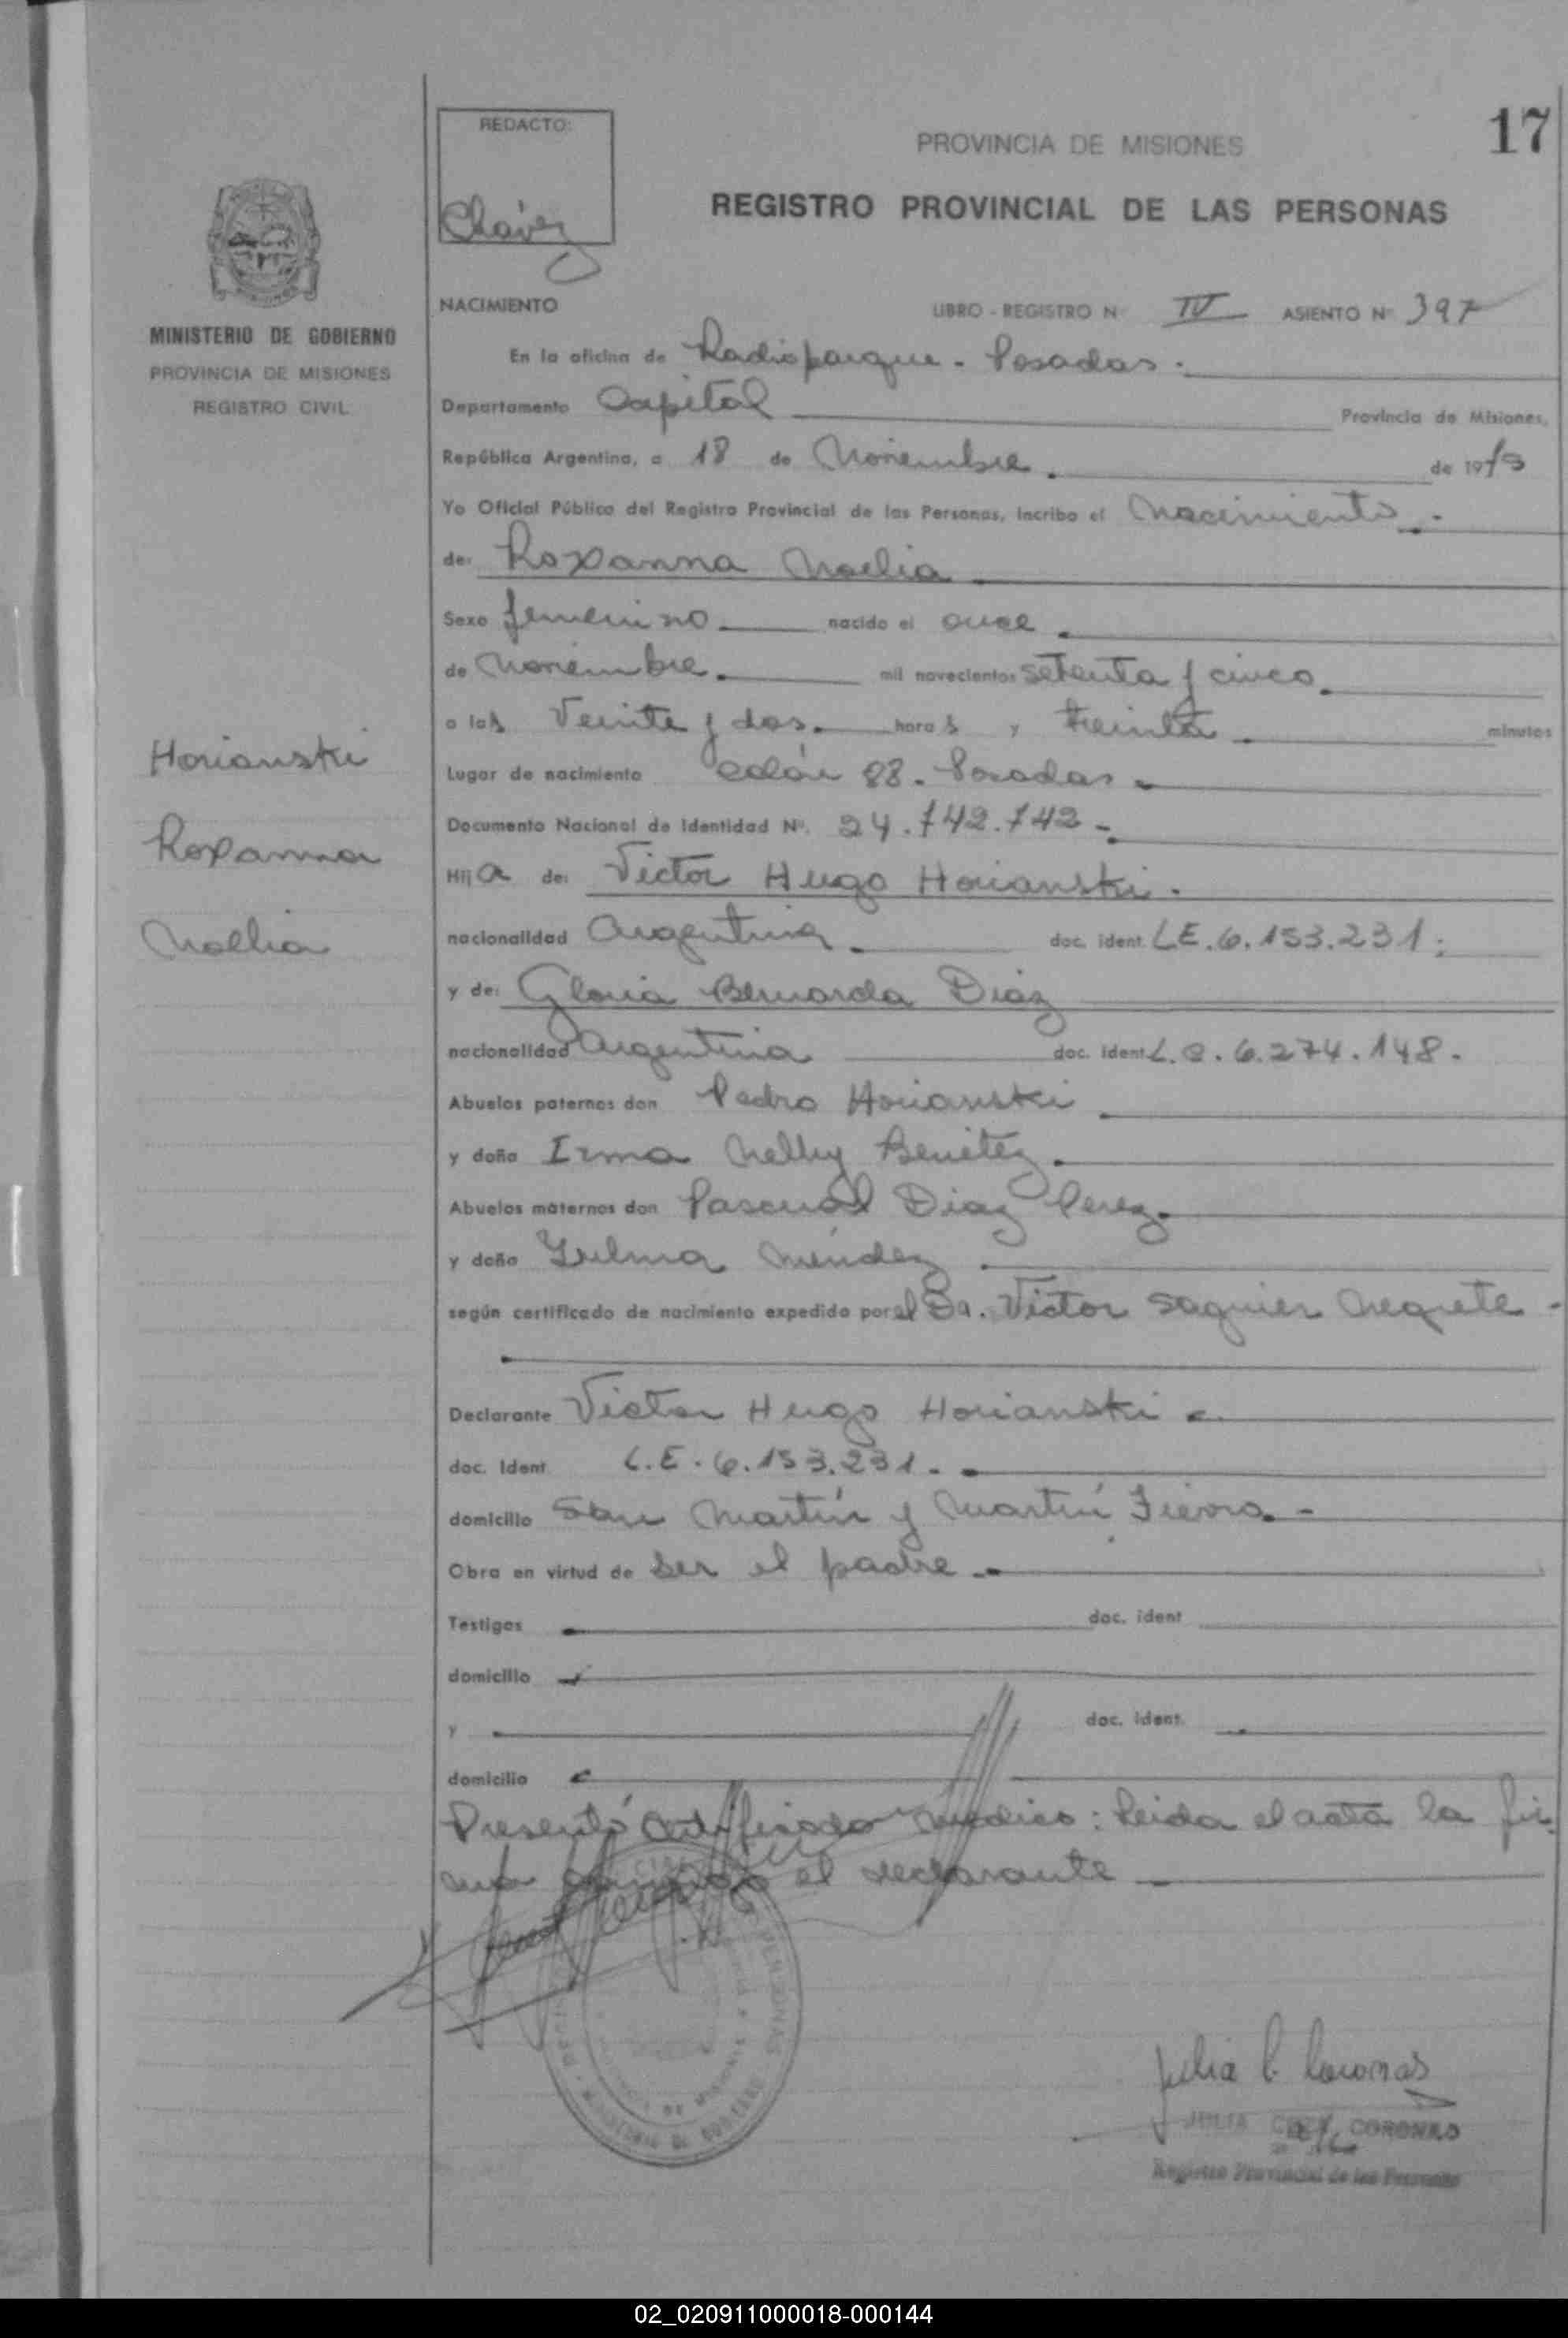 17
REDACTO:
Chávez
PROVINCIA DE MISIONES
REGISTRO PROVINCIAL DE LAS PERSONAS
MINISTERIO DE GOBIERNO
PROVINCIA DE MISIONES
REGISTRO CIVIL
NACIMIENTO LIBRO - REGISTRO Nº IV ASIENTO Nº 397
En la oficina de Radioparque - Posadas.
Departamento Capital Provincia de Misiones,
República Argentina, a 18 de Noviembre de 1975
Yo Oficial Público del Registro Provincial de las Personas, incribo el Nacimiento.
de: Roxanna Noelia
Sexo femenino nacido el once
de Noviembre mil novecientos setenta y cinco
a las Veinte y dos horas y treinta minutos
Lugar de nacimiento Colón 88. Posadas
Documento Nacional de Identidad Nº. 24.742.742
Hija de: Victor Hugo Horianski.
nacionalidad Argentina doc. ident. L.E. 6.153.231
y de: Gloria Bernarda Diaz
nacionalidad Argentina doc. ident. L.C. 6.274.148.
Abuelos paternos don Pedro Horianski
y doña Irma Nelly Benitez
Abuelos maternos don Pascual Diaz Perez
y doña Zulma Mendez
según certificado de nacimiento expedido por el Dr. Victor Saguier Negrete
Declarante Victor Hugo Horianski
doc. Ident. L.E. 6.153.231.
domicilio San Martín y Martín Fierro
Obra en virtud de ser el padre
Testigos doc. ident
domicilio
y doc. ident.
domicilio
Presentó Certificado Medico: Leida el acta la fir
ma el declarante
Horianski
Roxanna
Noelia
MINISTERIO DE GOBIERNO
Julia C. Coronas
JULIA CORONAS
Registro Provincial de las Personas
02_020911000018-000144